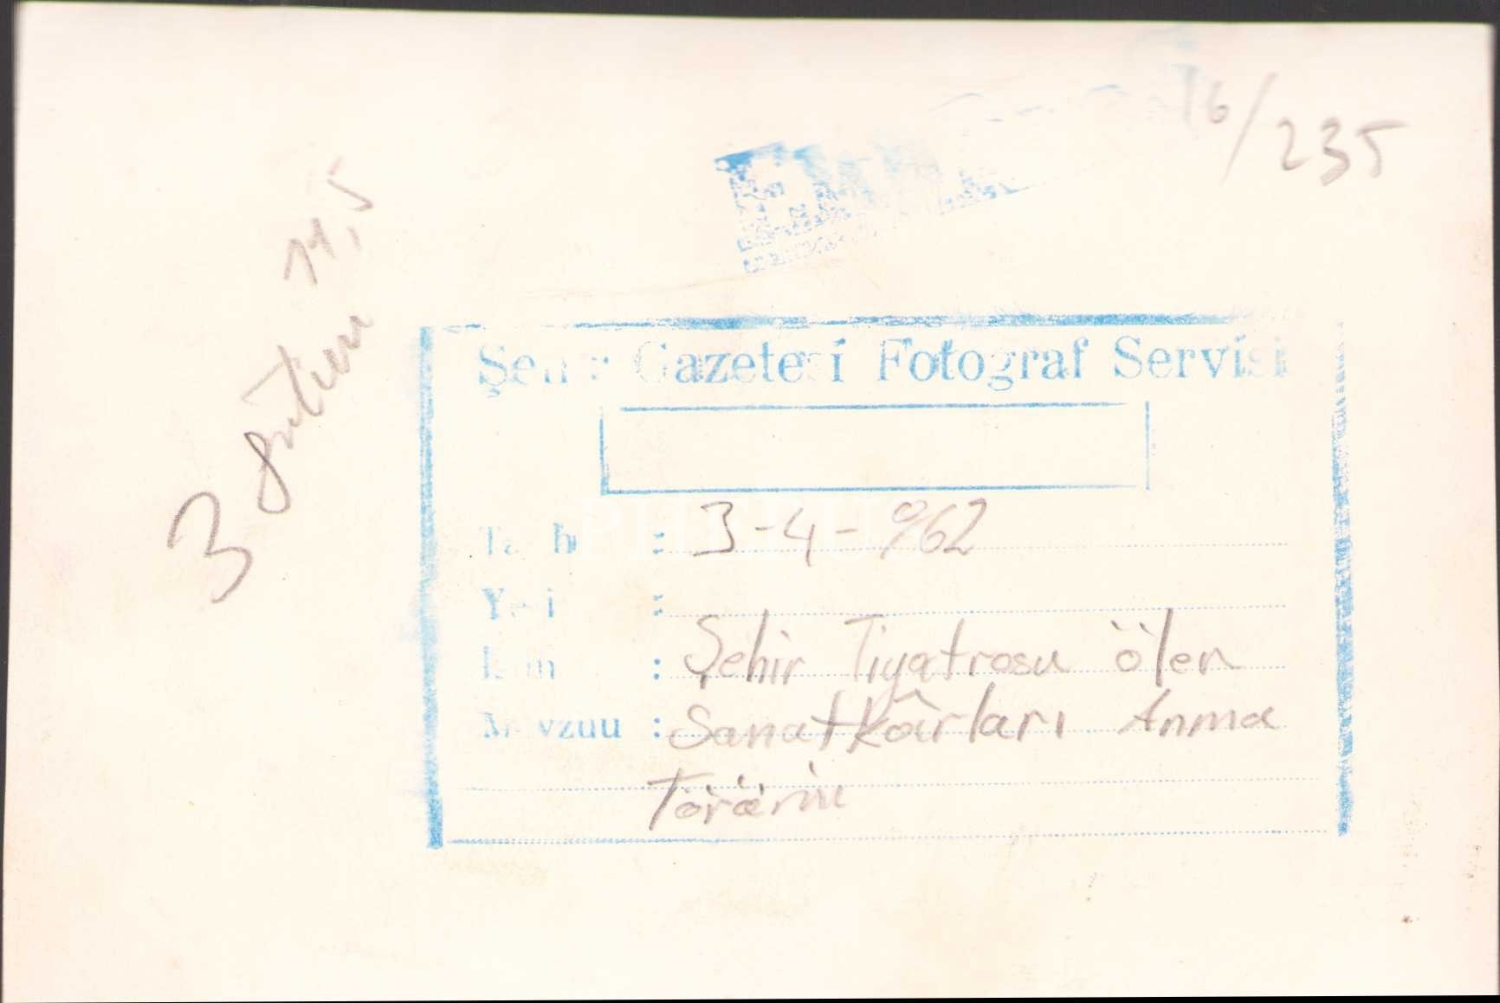 16/235
3 sütun 14,5
Şehir Gazetesi Fotograf Servisi
Tarihi : 3-4-962
Yeri :
: Şehir Tiyatrosu ölen
Mevzuu : Sanatkârları Anma
Töreni